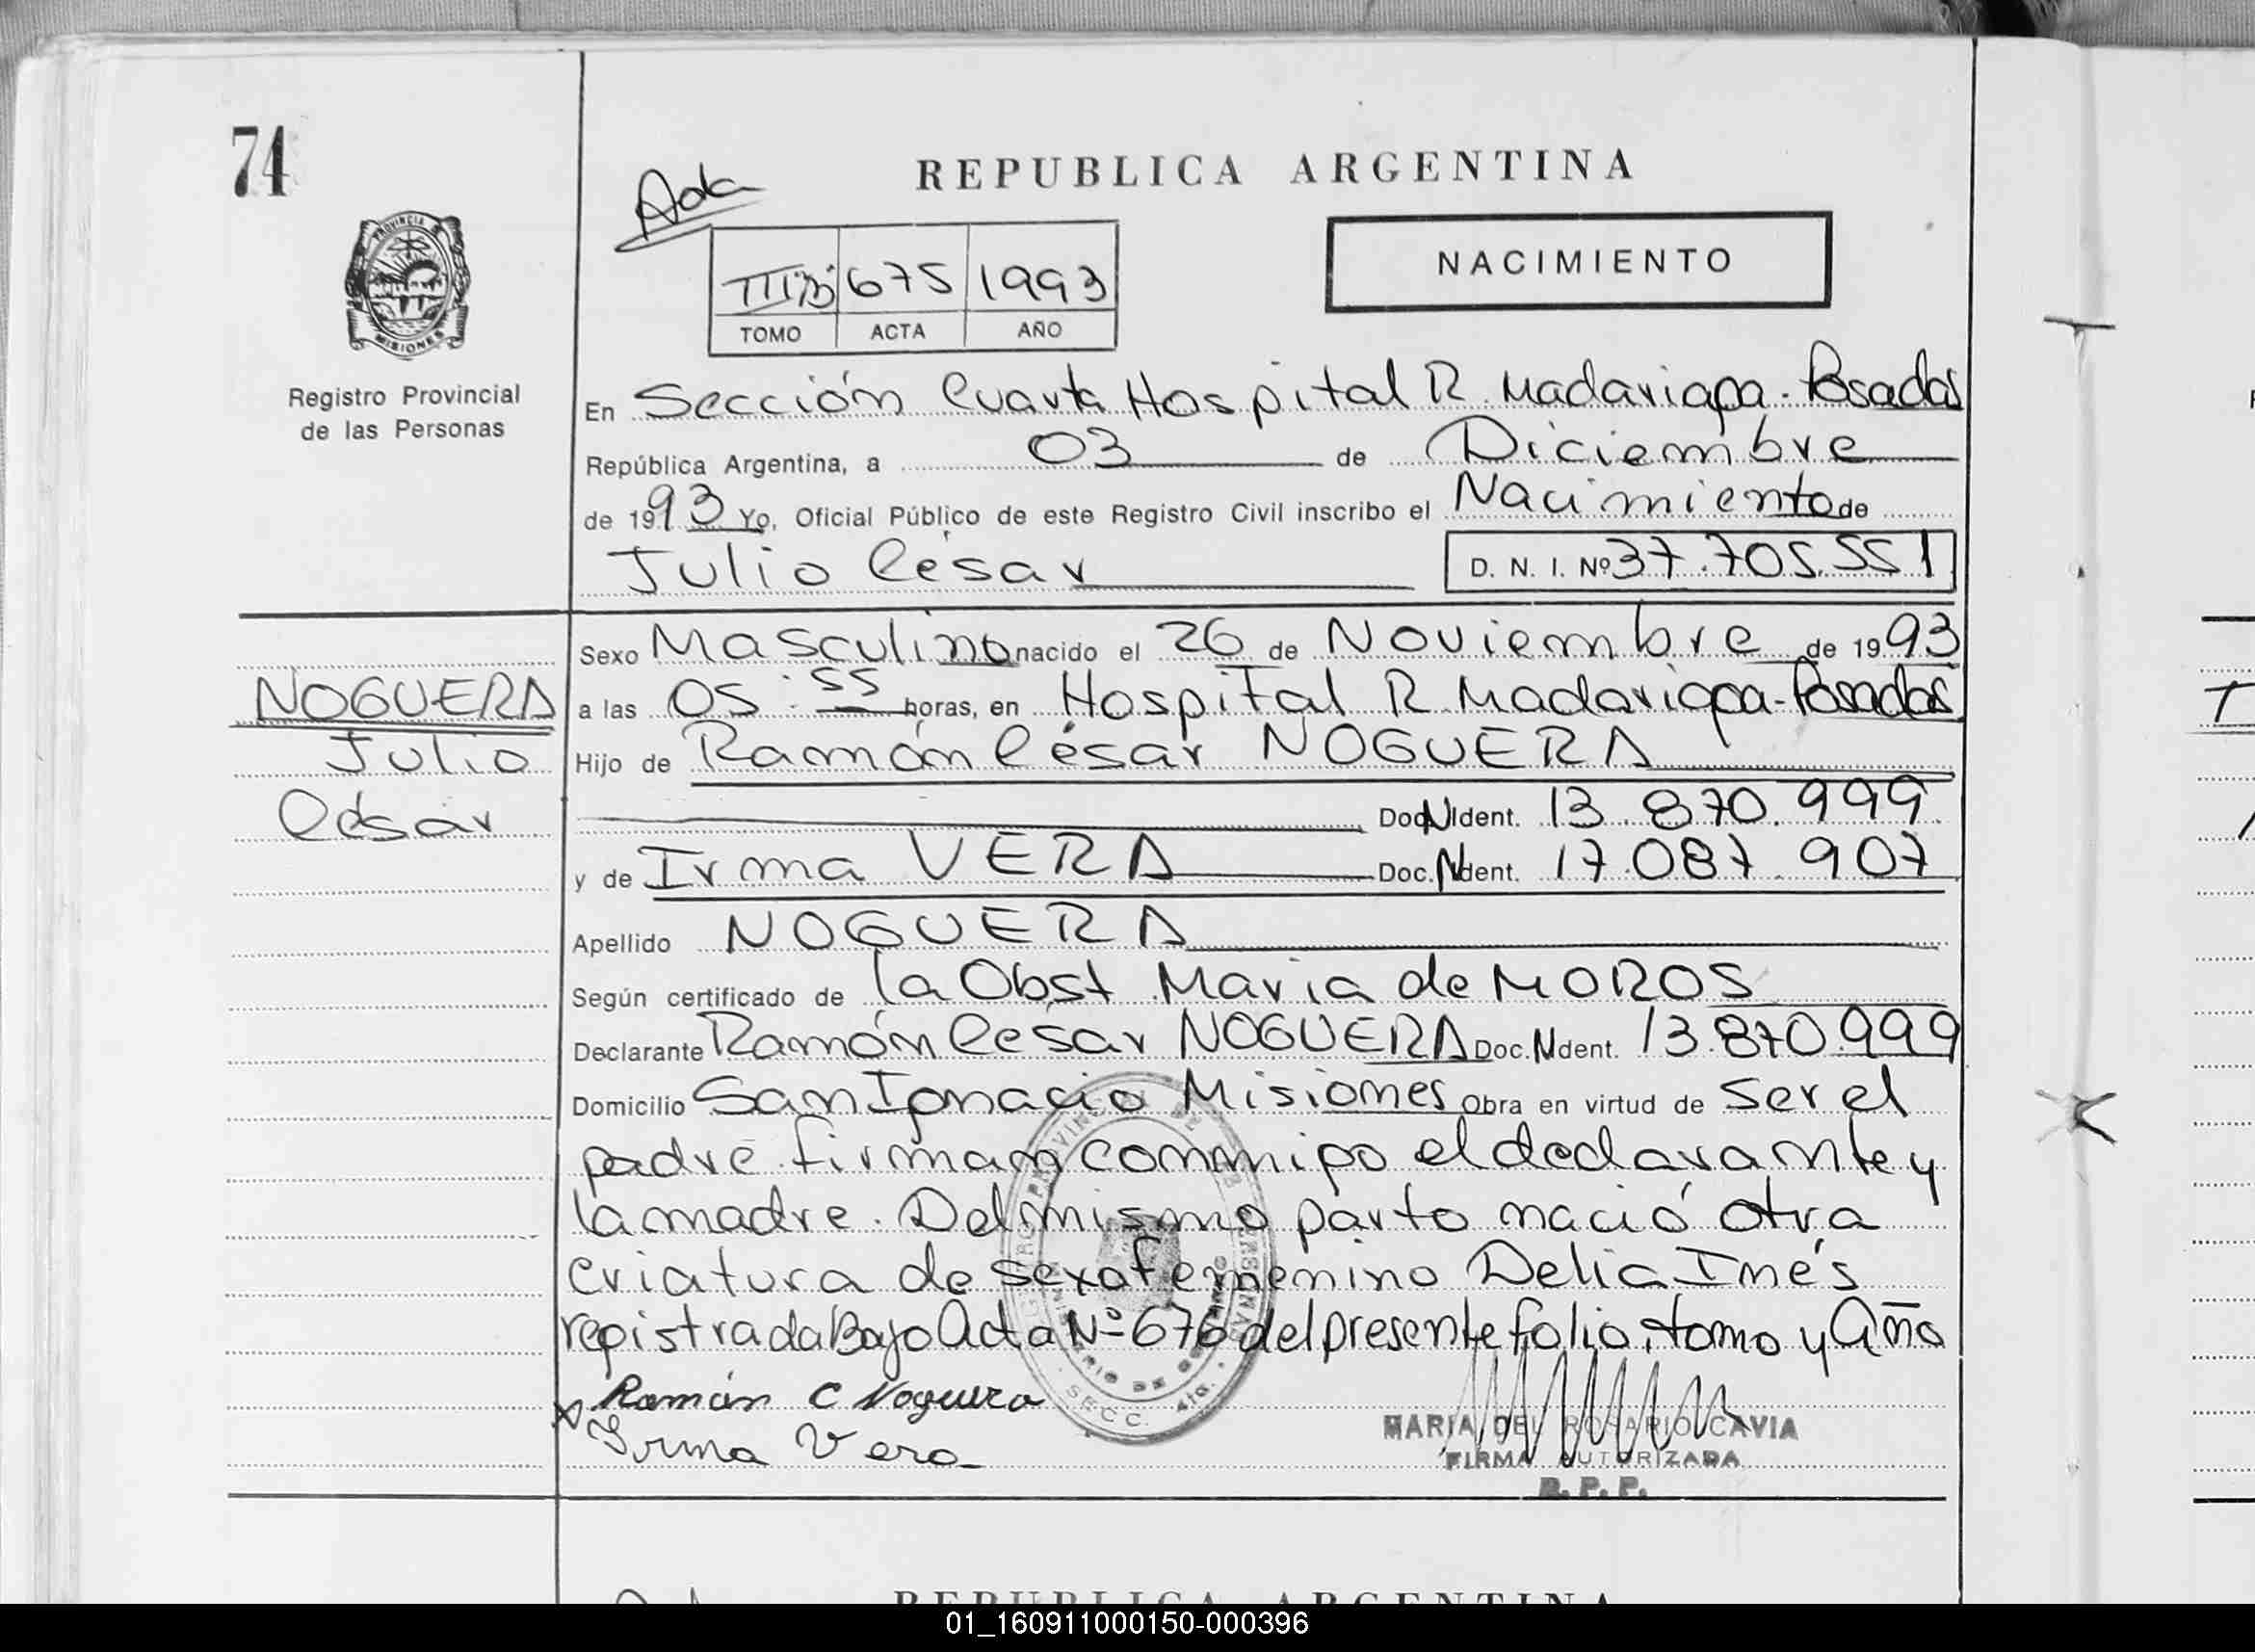 74
Ada
REPUBLICA ARGENTINA
PROVINCIA
MISIONES
III 675 1993
TOMO ACTA AÑO
NACIMIENTO
Registro Provincial
de las Personas
En Sección Cuarta Hospital R. Madariaga - Posadas
República Argentina, a 03 de Diciembre
de 1993 Yo, Oficial Público de este Registro Civil inscribo el Nacimiento de
Julio César D. N. I. Nº 37.705.551
Sexo Masculino nacido el 26 de Noviembre de 1993
NOGUERA
a las 05:55 horas, en Hospital R. Madariaga - Posadas
Julio
Hijo de Ramón César NOGUERA
César
Doc. N Ident. 13.870.999
y de Irma VERA Doc. N Ident. 17.087.907
Apellido NOGUERA
Según certificado de la Obst Maria de MOROS
Declarante Ramón César NOGUERA Doc. N Ident. 13.870.999
Domicilio San Ignacio Misiones Obra en virtud de ser el
padre. firman conmigo el declarante y
la madre. Del mismo parto nació otra
criatura de sexo femenino Delia Inés
registrada Bajo Acta Nº 676 del presente folio, tomo y Año
Ramón C Noguera
Irma Vera
SECC. 4ta.
MARIA DEL ROSARIO CAVIA
FIRMA AUTORIZADA
R. P. P.
REPUBLICA ARGENTINA
01_160911000150-000396